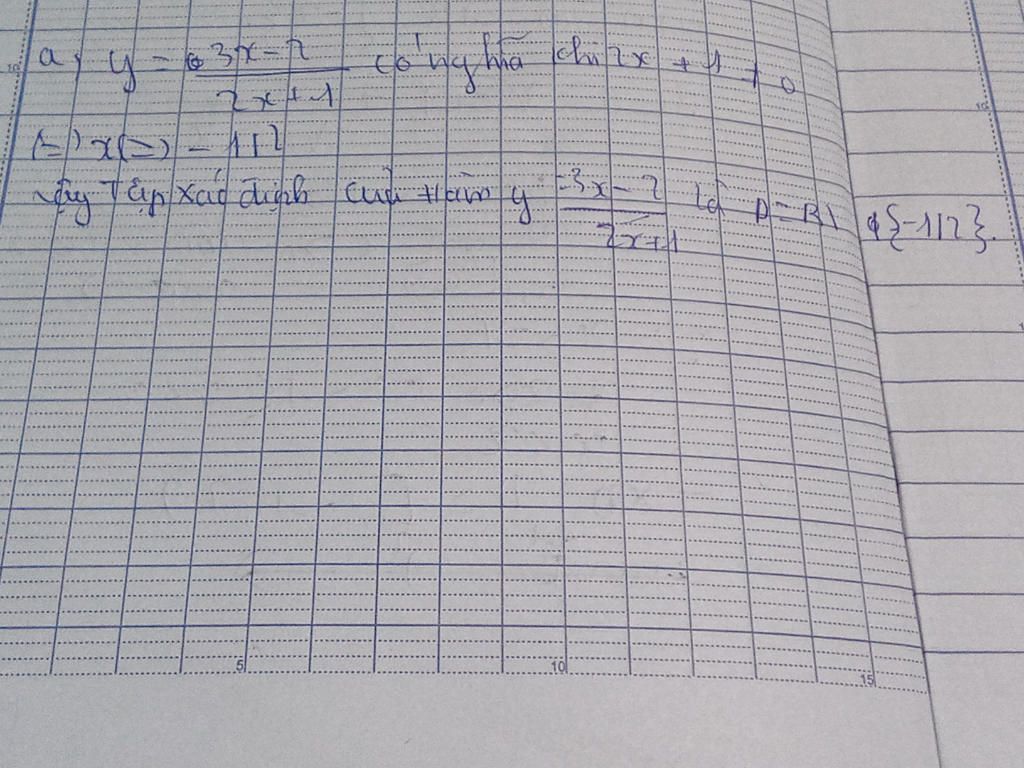 a, y = 3x-2/2x+1 có nghĩa khi 2x + 1 ≠ 0
(=) x(=) - 1|2
Vậy Tập xác định của Hàm y = 3x-2/2x+1 là D = R\ {-1|2}.
5 10 15